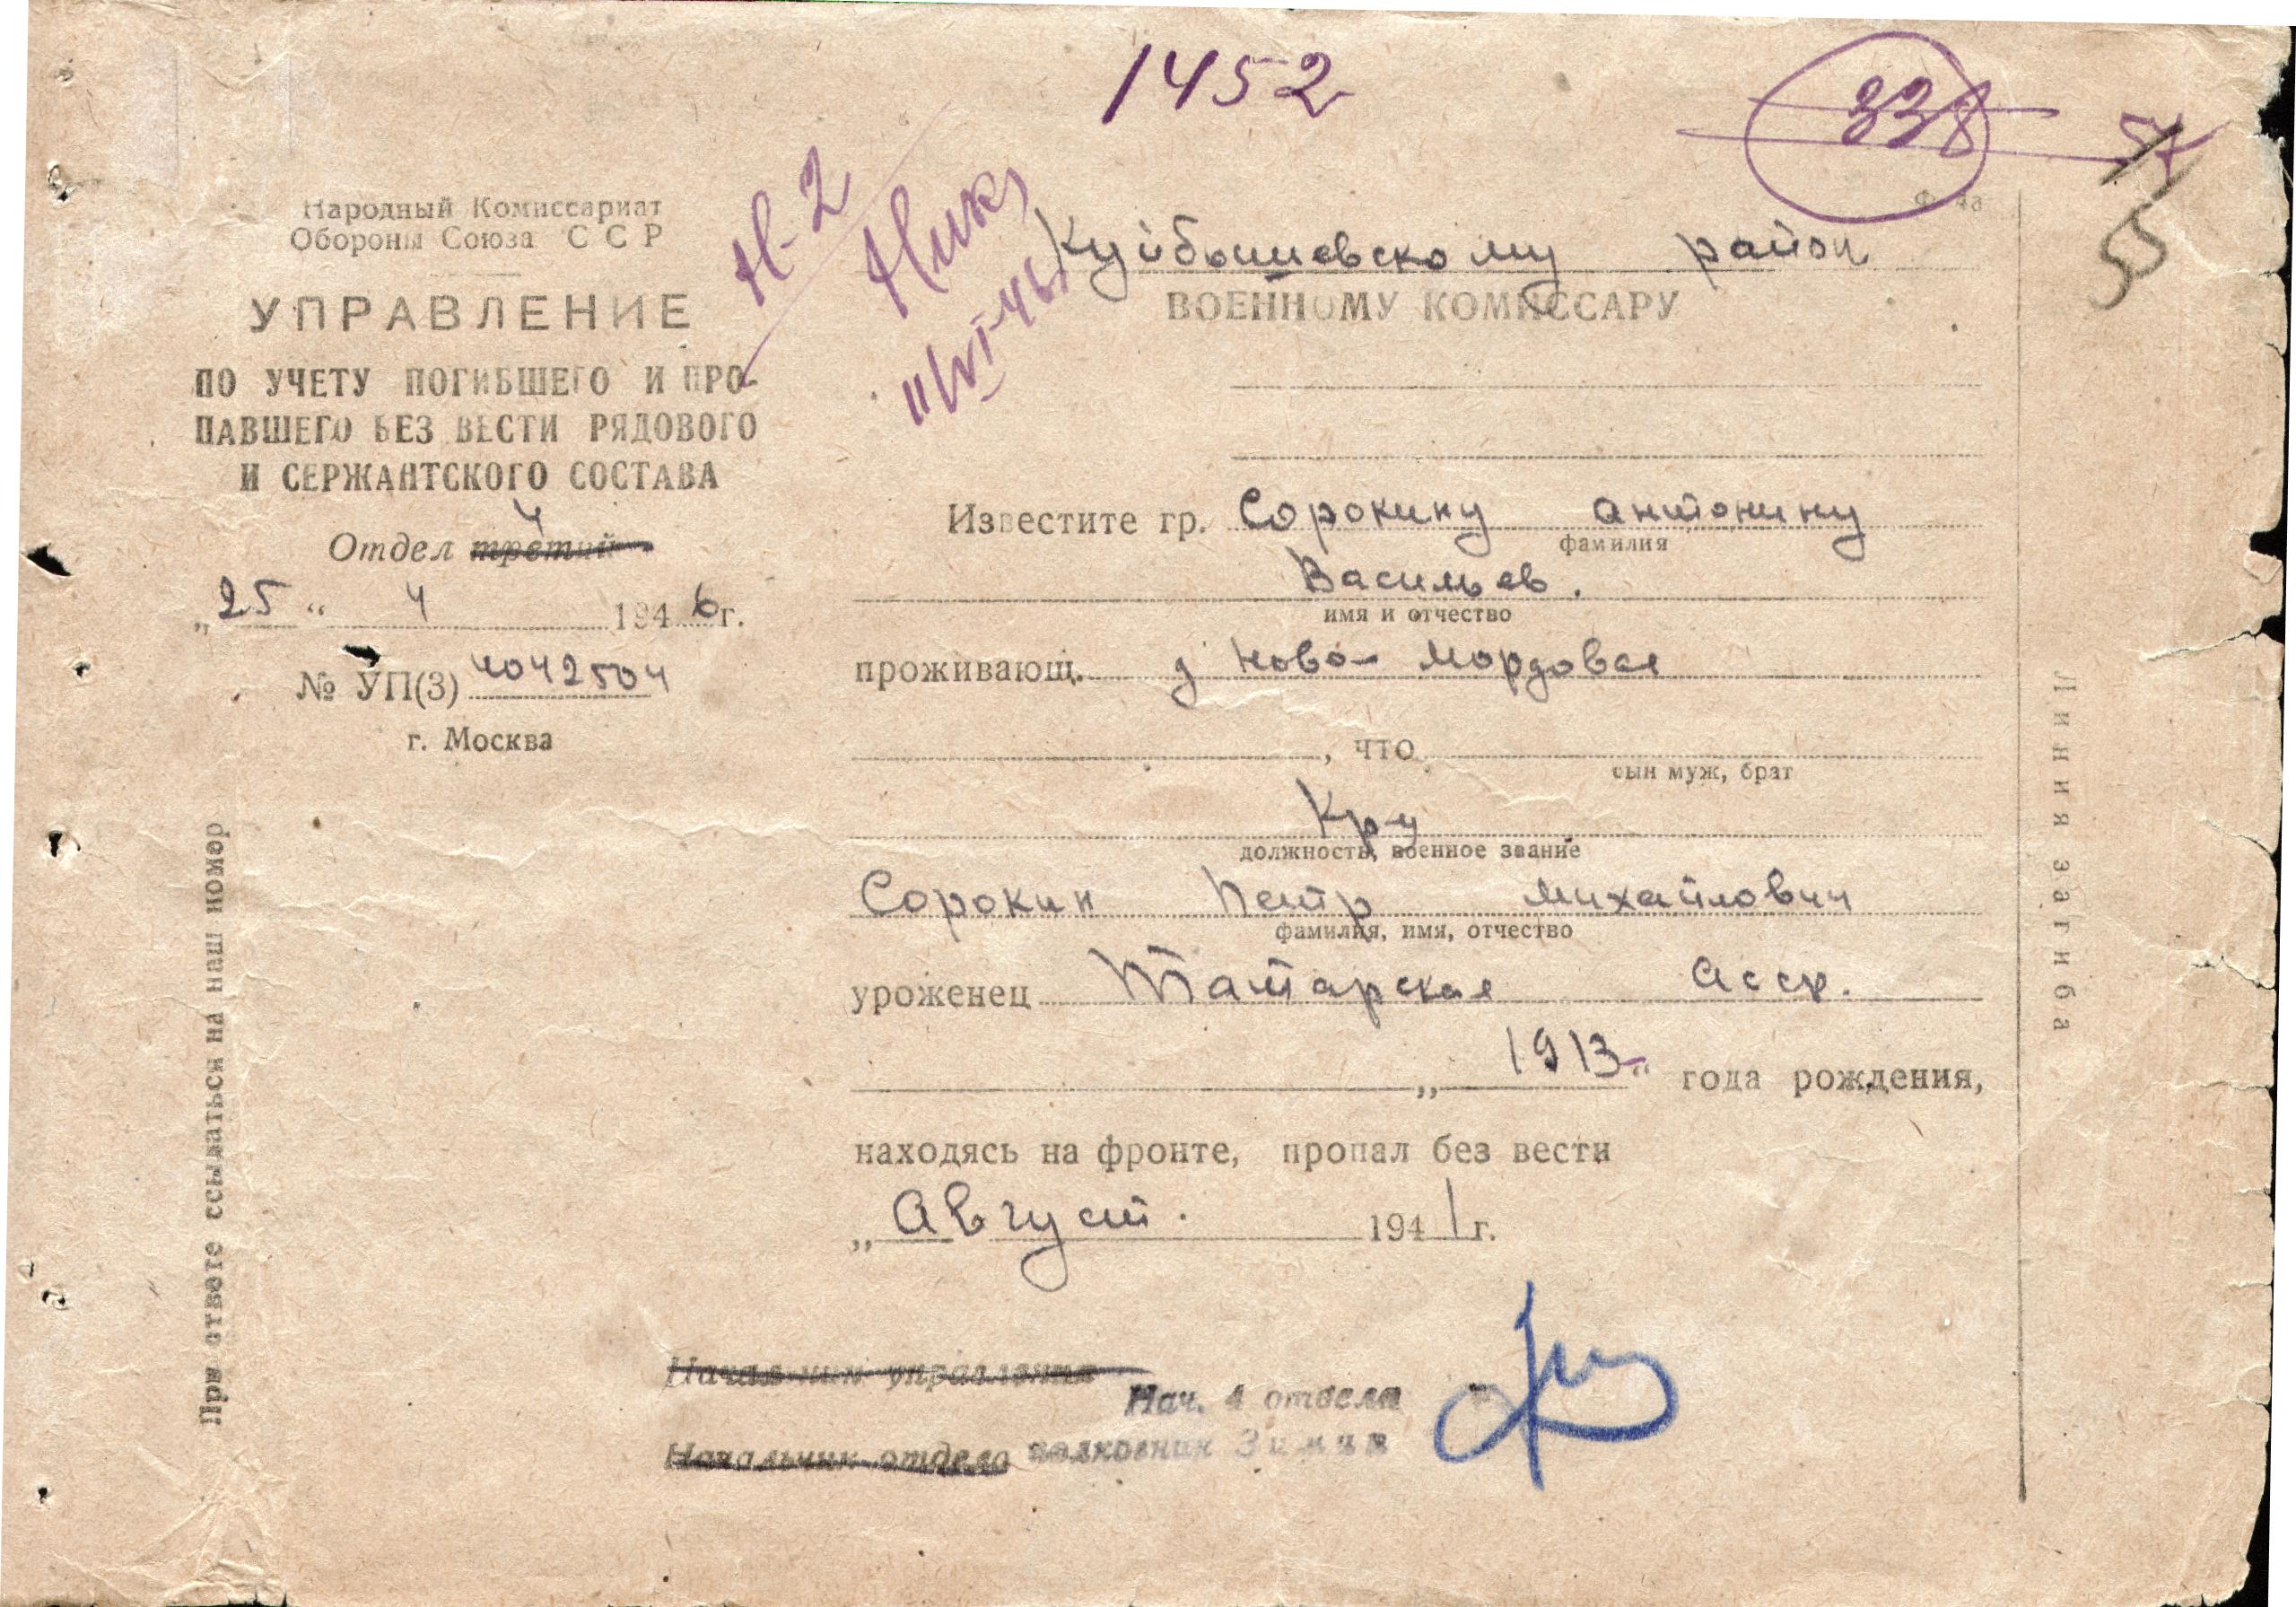 1452
338
57
55
Ф. 4а
Н-2
11/VI-46
Народный Комиссариат
Обороны Союза ССР
УПРАВЛЕНИЕ
ПО УЧЕТУ ПОГИБШЕГО И ПРО-
ПАВШЕГО БЕЗ ВЕСТИ РЯДОВОГО
И СЕРЖАНТСКОГО СОСТАВА
4
Отдел третий
„25“ 4 1946г.
№ УП(3) 4042504
г. Москва
При ответе ссылаться на наш номер
Куйбышевскому район
ВОЕННОМУ КОМИССАРУ
Известите гр. Сорокину Антонину
фамилия
Васильев.
имя и отчество
проживающ. д Ново-Мордовая
, что
сын муж, брат
Кр-ц
должность, военное звание
Сорокин Петр Михайлович
фамилия, имя, отчество
уроженец Татарская Асср.
„1913“ года рождения,
находясь на фронте, пропал без вести
„Август. 1941г.
Начальник управления
Нач. 4 отдела
Начальник отдела полковник Зимин
Линия загиба